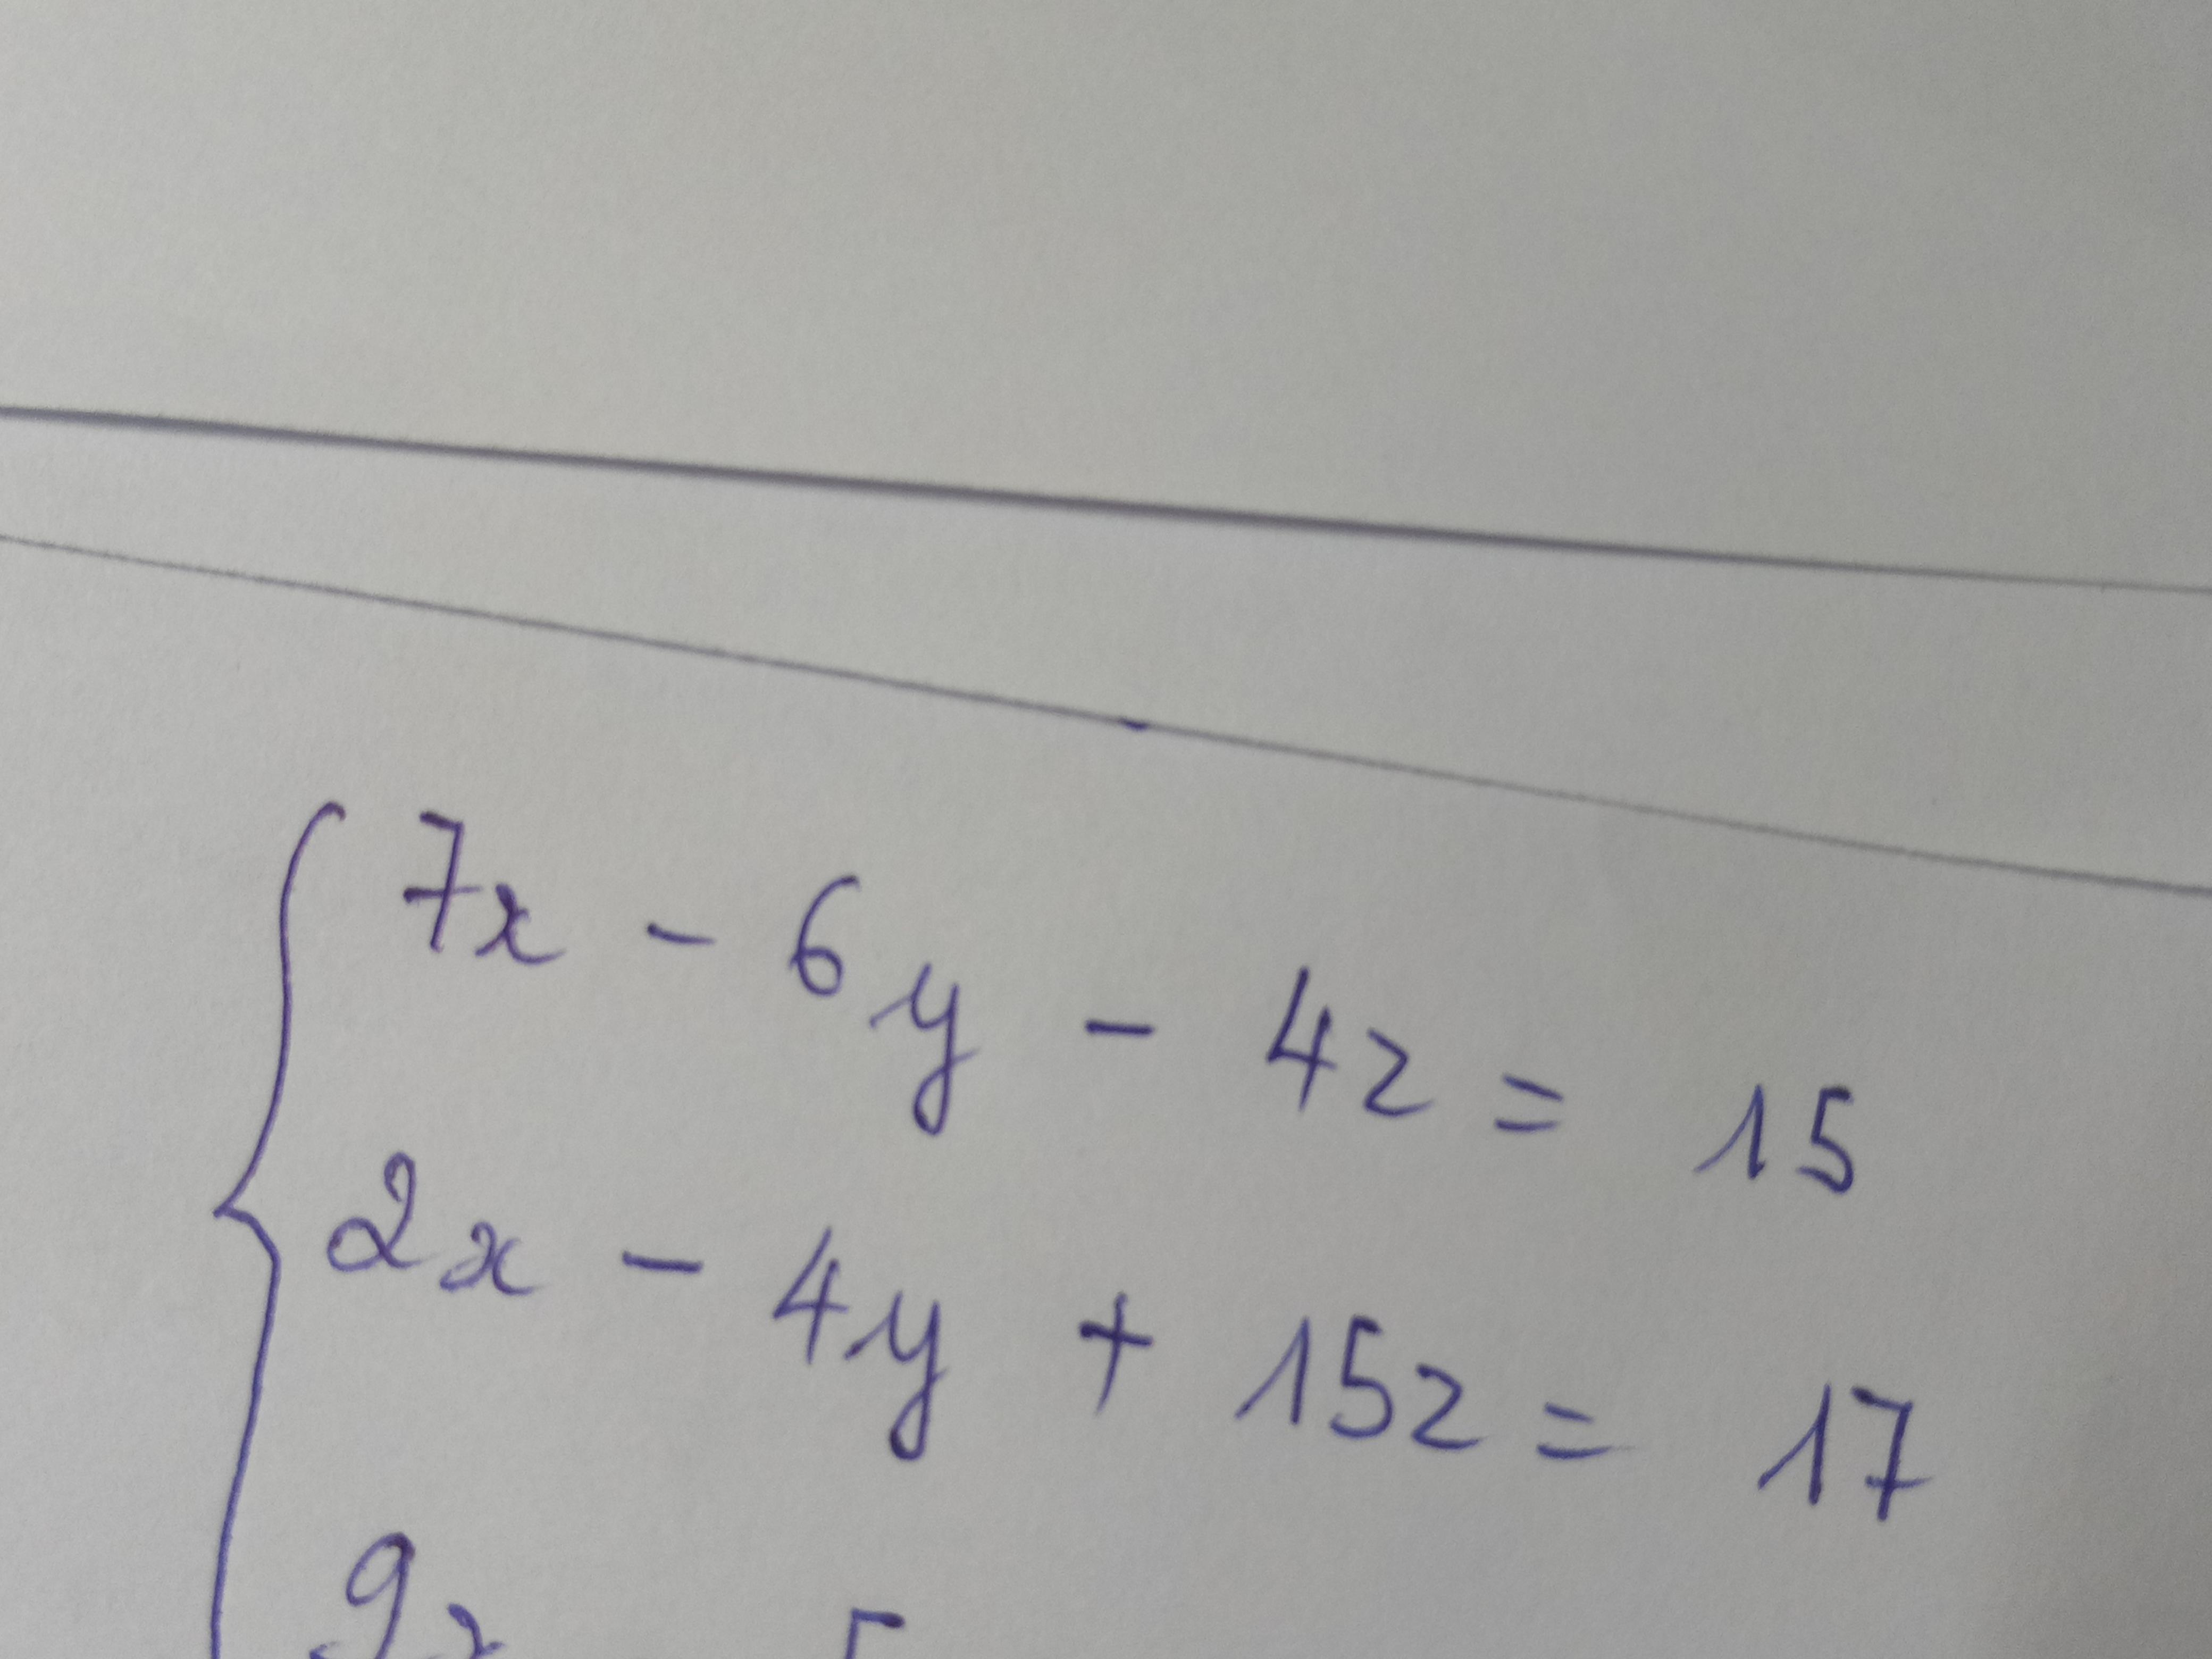 7x - 6y - 4z = 15
2x - 4y + 15z = 17
9x 5